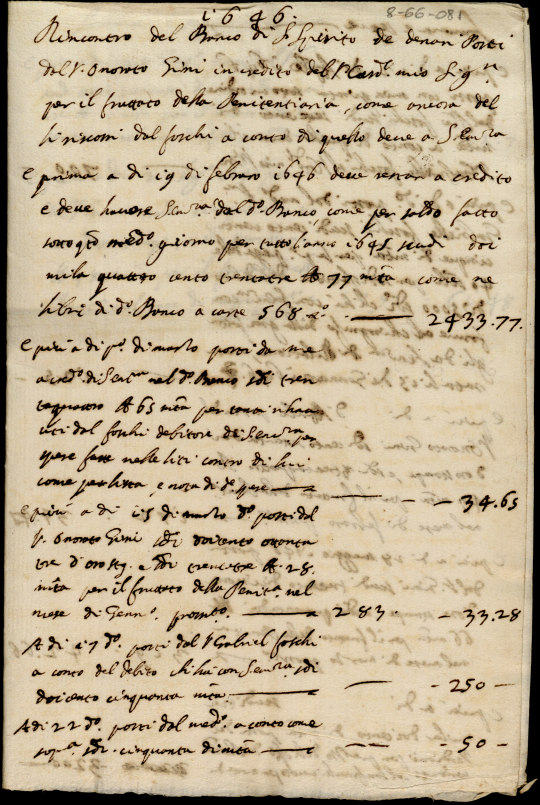 1646.
8-66-081
Rincontro del Banco di S. Spirito de denari Porti
dal S. Onorato Gini in credito del S. Card.l mio Sig.re
per il fruttato della Penitentiaria, come ancora del
li riscossi dal foschi a conto di quello deve a S. Em.za
E prima a di 19 di febraro 1646 deve restar a credito
e deve havere S. Em.za dal d.o Banco, come per saldo fatto
sotto q.to med.o giorno per tutto l'anno 1645 scudi doi
mila quattro cento trentatre b 77 m.ta come ne
libri di d.o Banco a carte 568 — 2433.77.
E più a di p.o di marzo porti da me
a cred.o di S. Em.za nel d.o Banco sdi tren
taquattro b 65 m.ta per tanti rihau
uti dal foschi debitore di S. Em.za per
spese fatte nelle liti contro di lui
come per lista, e nota di d.e spese — 34.65
E più a di 15 di marzo d.o porti dal
S. Onorato Gini sdi doicento ottanta
tre d'oro e sdi trentatre b 28.
m.ta per il fruttato della Penit.a nel
mese di Genn.o pross.o — 283. — 33.28
A di 17 d.o porti dal S. Gabriel foschi
a conto del debito che ha con S. Em.za sdi
doicento cinquanta m.ta — 250 —
A di 22 d.o porti dal med.o a conto come
sop.a sdi cinquanta di m.ta — 50 —